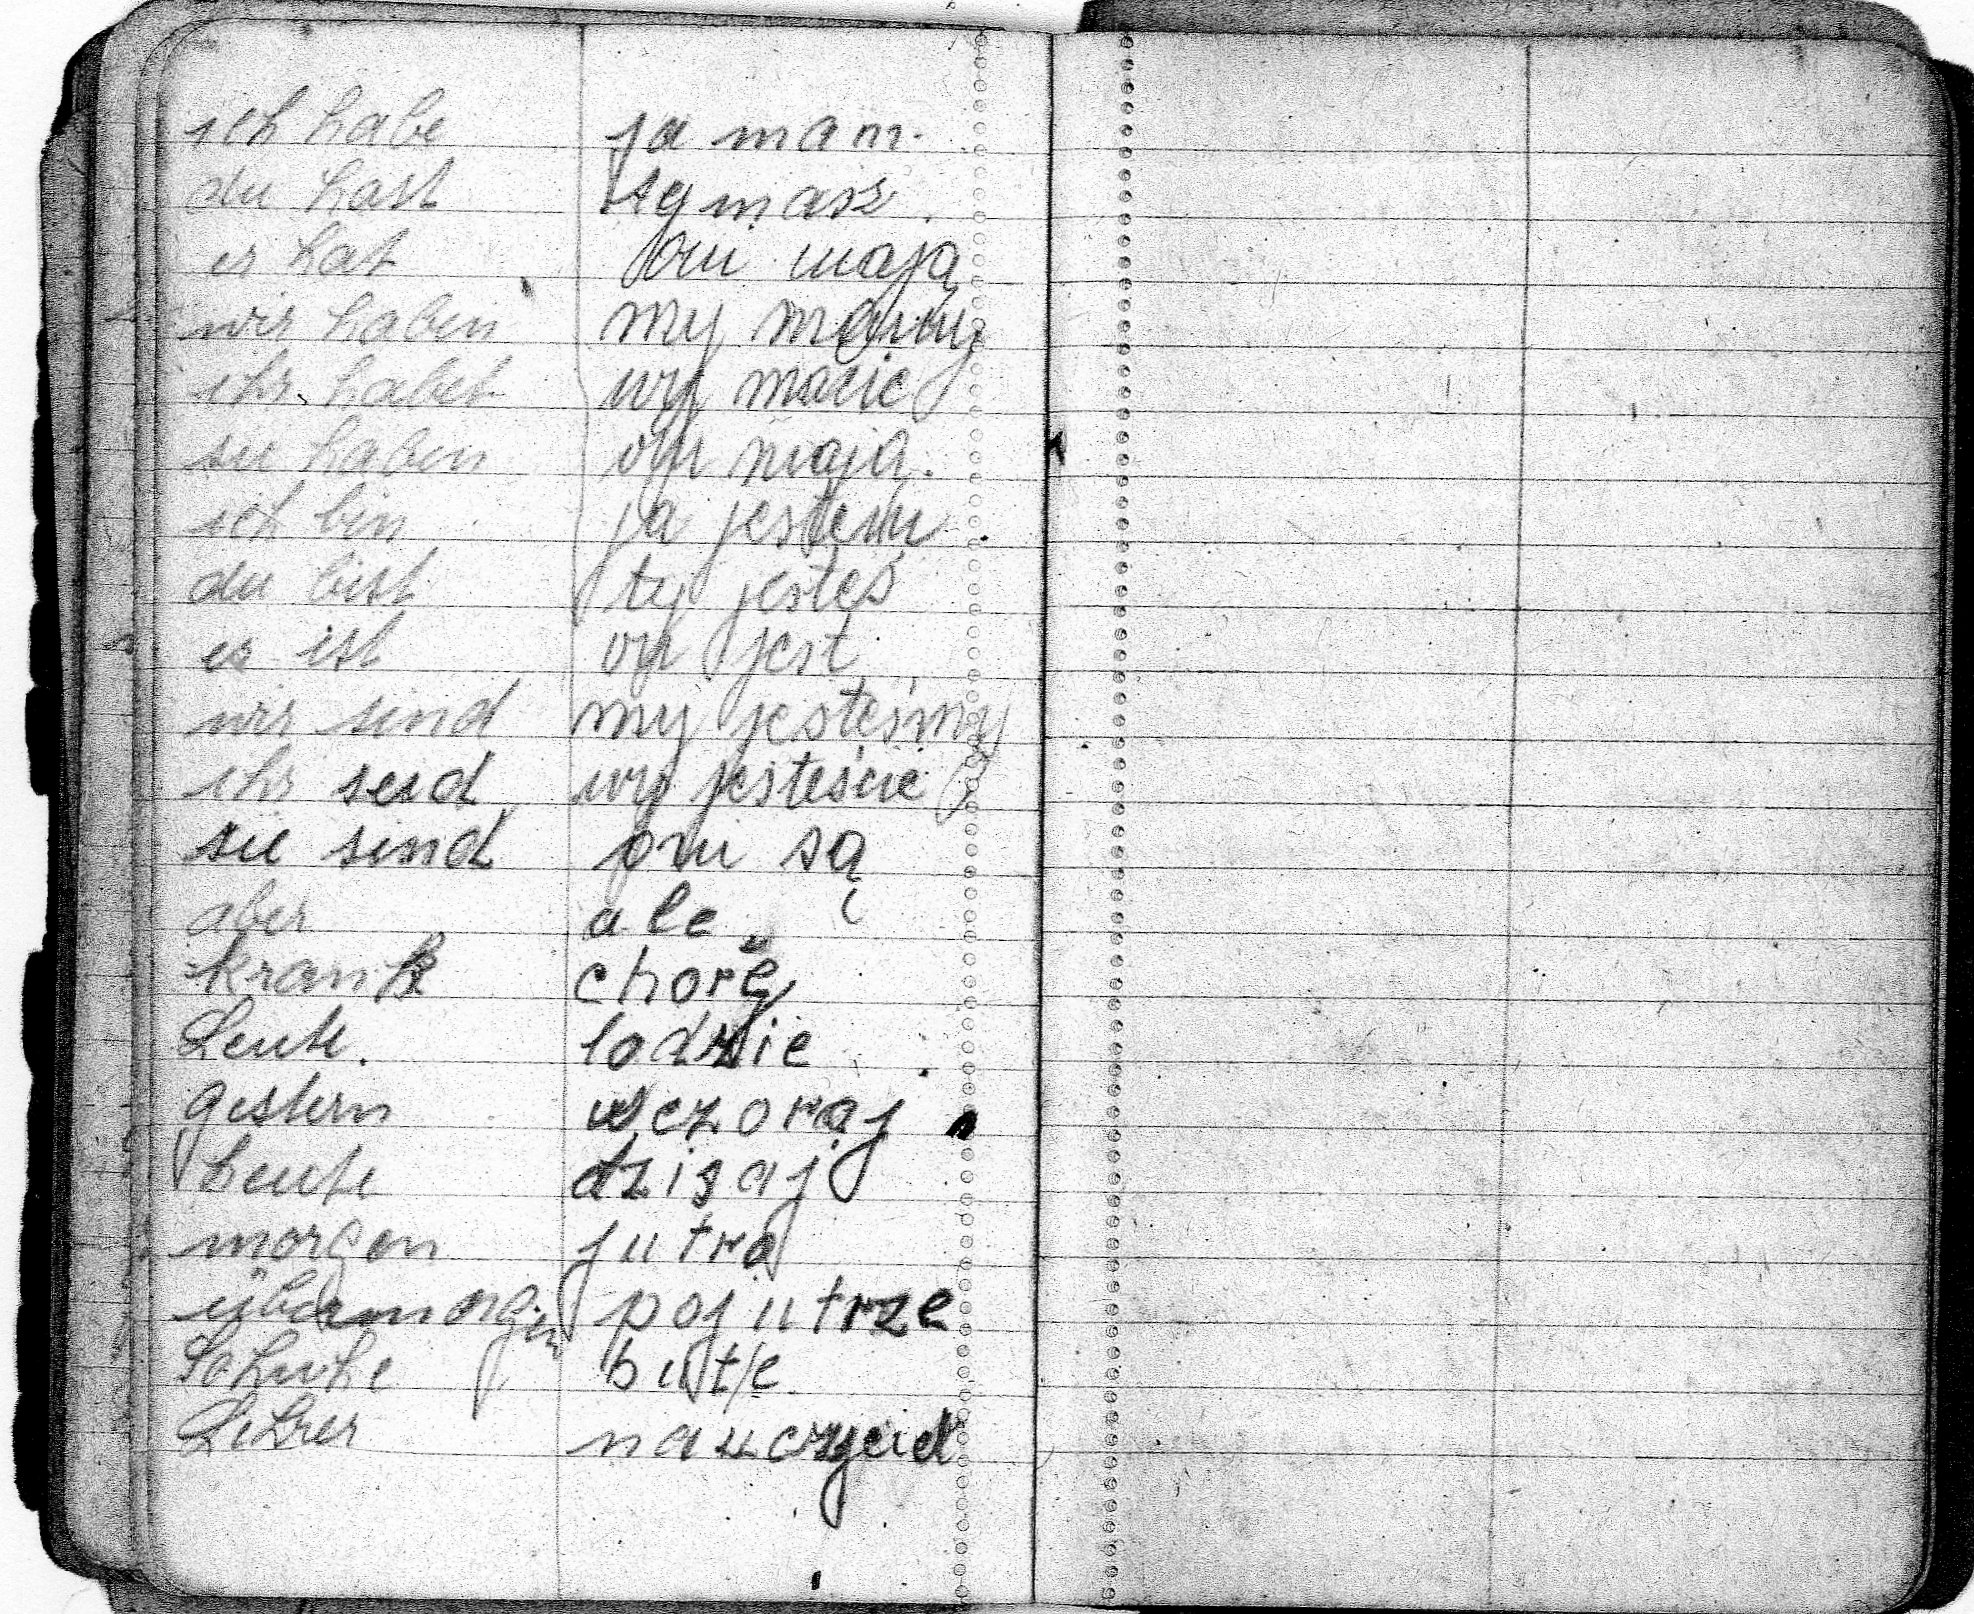 ich habe ja mam.
du hast ty masz.
er hat oni mają
wir haben my mamy
ihr habet wy macie
sie haben oni mają.
ich bin ja jestem.
du bist ty jesteś
er ist on jest
wir sind my jesteśmy
ihr seid wy jesteście
sie sind oni są
aber ale
krank
Leute. lodzie
gestern wczoraj
heute dzisaj
morgen jutro
übermorgen pojutrze
Schuhe
Lehrer nauczyciel